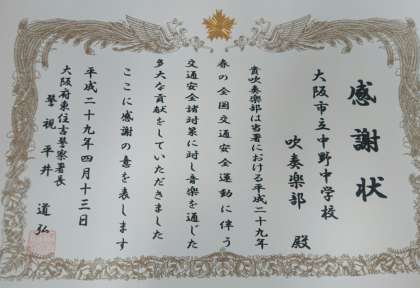 感謝状
大阪市立中野中学校
吹奏楽部 殿
貴吹奏楽部は当署における平成二十九年
春の全国交通安全運動に伴う
交通安全諸対策に対し音楽を通じた
多大な貢献をしていただきました
ここに感謝の意を表します
平成二十九年四月十三日
大阪府東住吉警察署長
警視 平井 道弘